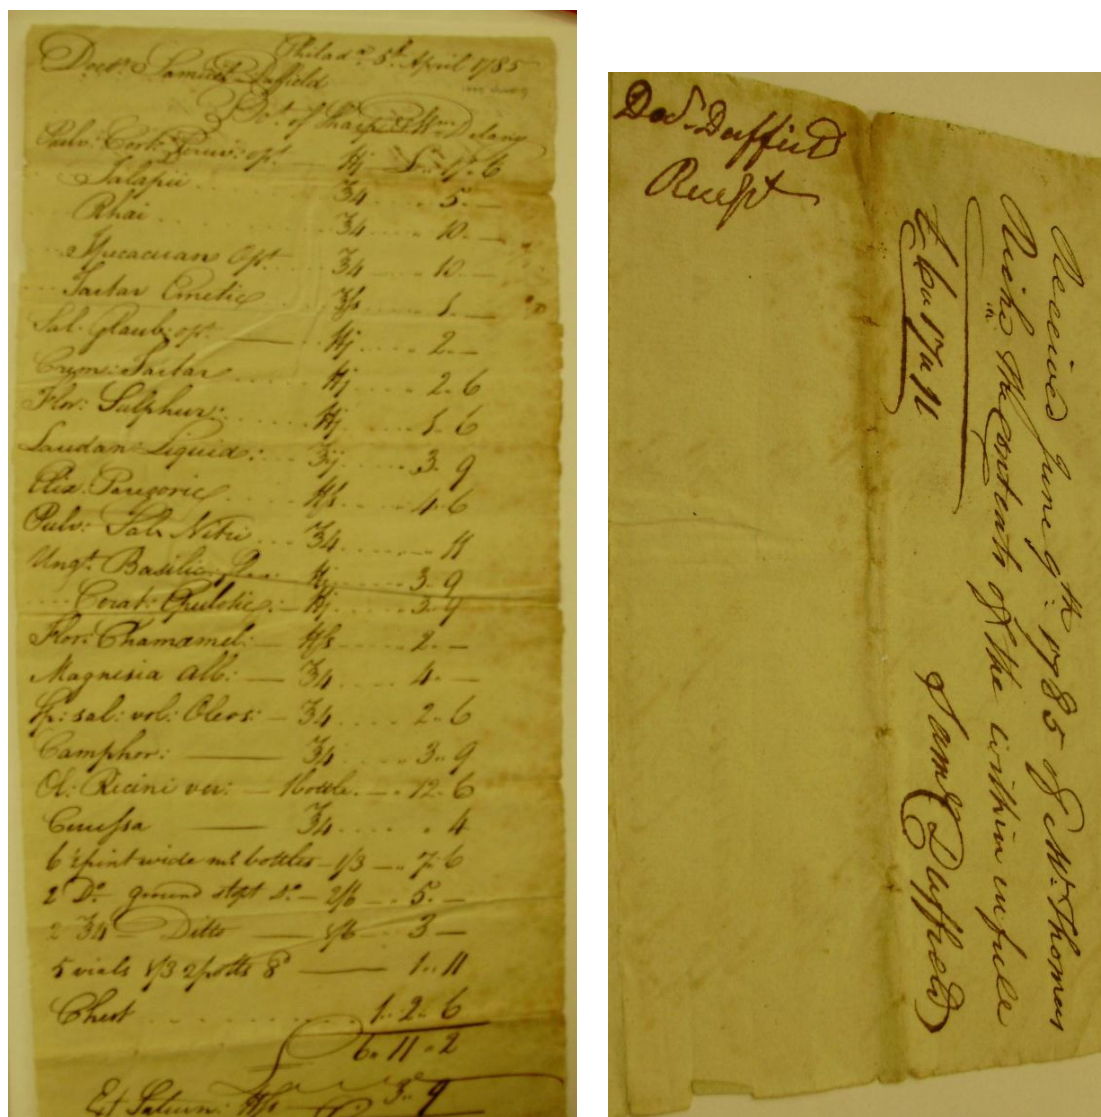 Philada. 5th April 1785
Doctr. Samuel Duffield
Bot. of Sharp & Wm Delany
Pulv: Cort: Peruv: opt. — ℔j — £ " 17 " 6
Jalapii ʒ4 5. —
Rhai ʒ4 10. —
Ipecacuan Opt ʒ4 10 —
Tartar Emetic 1. —
Sal. Glaub: opt. — ℔j 2. —
Crem: Tartar ℔j 2. 6
Flor: Sulphur: ℔j 1. 6
Laudan: Liquid: 3. 9
Elix. Paregoric ℔ſs 4. 6
Pulv: Sal: Nitri ʒ4 11
Ungt. Basilic: ℔j 3. 9
Cerat: Epulotic: — ℔j 3. 9
Flor: Chamamel: — ℔ſs 2. —
Magnesia Alb: — ʒ4 4. —
Sp: sal: vol: Oleos: — ʒ4 2. 6
Camphor: — ʒ4 3. 9
Ol: Ricini ver: — 1 bottle — 12. 6
Cerussa — ʒ4 . 4
6 ½ pint wide mo. bottles — 1/3 — 7. 6
2 Do. ground stopt Do. — 2/6 — 5. —
2 ʒ4 Ditto — 1/6 — 3 —
5 vials 1/3 2 potts 8 — 1. 11
Chest 1. 2. 6
6. 11. 2
Ext Saturn: ℔ſs — 3. 9
Doct. Duffield
Receipt
Received June 9th: 1785 of Mr. Thomas
Riche the contents of the within in full
£6. 17. 11
Saml Duffield